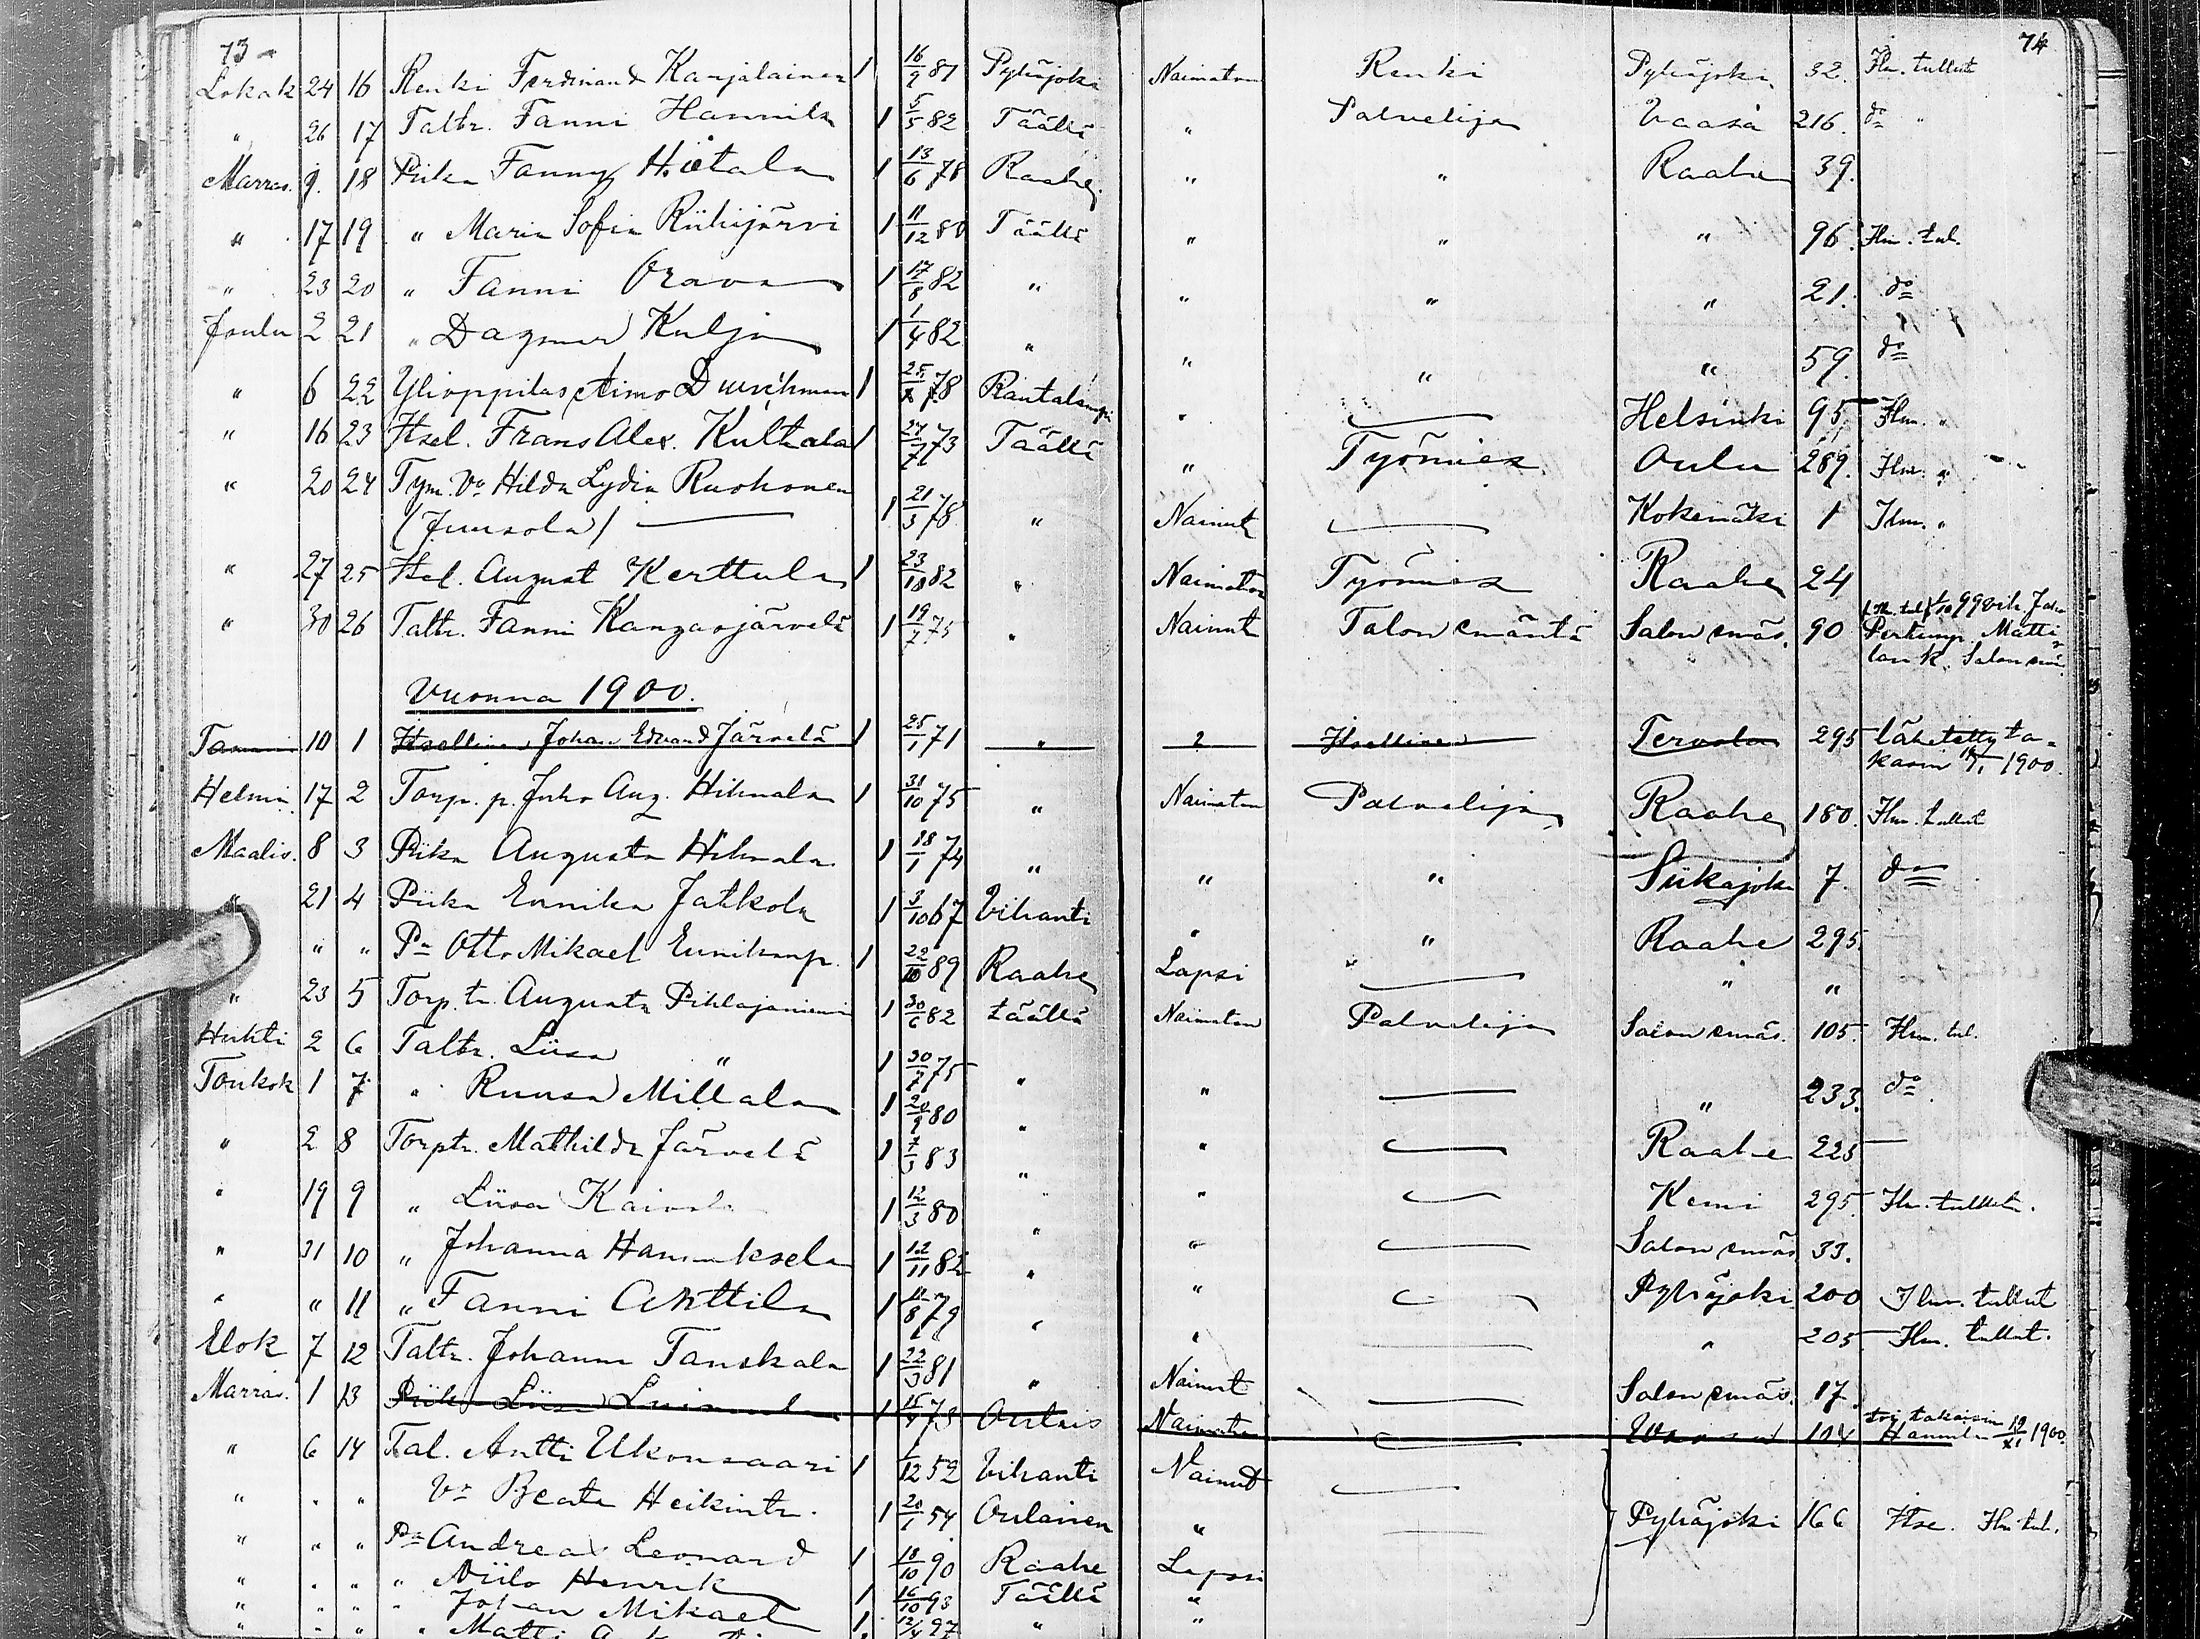 73
74
Lokak 24 16 Renki Ferdinand Karjalainen 1 16/9 81 Pyhäjoki Naimaton Renki Pyhäjoki 32. Ilm. tullut
" 26 17 Taltr. Fanni Hannila 1 5/5 82 Täällä " Palvelija Vaasa 216. do "
Marras. 9. 18 Piika Fanny Hietala 1 13/6 78 Raahe " " Raahe 39.
" 17 19 " Maria Sofia Riihijärvi 1 11/12 80 Täällä " " " 96. Ilm. tul.
" 23 20 " Fanni Orava 1 17/8 82 " " " " 21. do
Joulu 2 21 " Dagmar Kulju 1 1/4 82 " " " " 59. do
" 6 22 Ylioppilas Aimo 1 78 Rautalampi " Helsinki 95 Ilm. "
" 16 23 Itsel. Frans Alex. Kulthala 1 27/7 73 Täällä " Työmies Oulu 289. Ilm. "
" 20 24 Tym. Vo Hilda Lydia Ruohonen
(Juusola) 1 21/3 78 " Nainut Kokemäki 1 Ilm. "
" 27 25 Itsel. August Kerttula 1 23/10 82 " Naimaton Työmies Raahe 24
" 30 26 Taltr. Fanni Kangasjärvelä 1 19/7 75 " Nainut Talon emäntä Salon emäs. 90
Pertunp. Matti
lan k. Salon em.
Vuonna 1900.
Tammi 10 1 Itsellinen Johan Edvard Järvelä 1 25/1 71 " 2 Itsellinen Tervola 295 lähetetty ta=
kasin 1900.
Helmi 17 2 Torp. p. Juho Aug. Hihnala 1 31/10 75 " Naimaton Palvelija Raahe 180. Ilm. tullut
Maalis. 8 3 Piika Augusta Hihnala 1 18/1 74 " " " Siikajoki 7. do
" 21 4 Piika Ennika Jatkola 1 3/10 67 Vihanti " " Raahe 295.
" " Pa Otto Mikael Ennikanp. 1 22/10 89 Raahe Lapsi " "
" 23 5 Torp. tr. Augusta Pihlajaniemi 1 30/6 82 täällä Naimaton Palvelija Salon emäs. 105. Ilm. tul.
Huhti 2 6 Taltr. Liisa " 1 30/7 75 " " " 233. do
Toukok 1 7 " Ruusa Millala 1 20/9 80 " " Raahe 225
" 2 8 Torptr. Mathilda Järvelä 1 7/3 83 " " Kemi 295 Ilm. tullut.
" 19 9 " Liisa 1 12/3 80 " " Salon emäs 33.
" 31 10 " Johanna Hannuksela 1 12/11 82 " " Pyhäjoki 200 Ilm. tullut
" " 11 " Fanni Anttila 1 11/8 79 " " " 205 Ilm. tullut.
Elok 7 12 Taltr. Johanna Tanskala 1 22/3 81 " Nainut Salon emäs. 17.
Marras. 1 13 Piika Liisa 1 73 Oulais Naimaton 104 takaisin
1900.
" 6 14 Tal. Antti Ukonsaari 1 1/12 52 Vihanti Nainut
" " " Vo Beata Heikintr. 1 20/1 54 Oulainen " Pyhäjoki 166 Itse. Ilm. tul.
" " " Pa Andreas Leonard 1 18/10 90 Raahe Lapsi
" " " " Niilo Henrik 1 16/10 93 Täällä "
" " " " Johan Mikael 1 12/4 97 " "
" " " " Matti